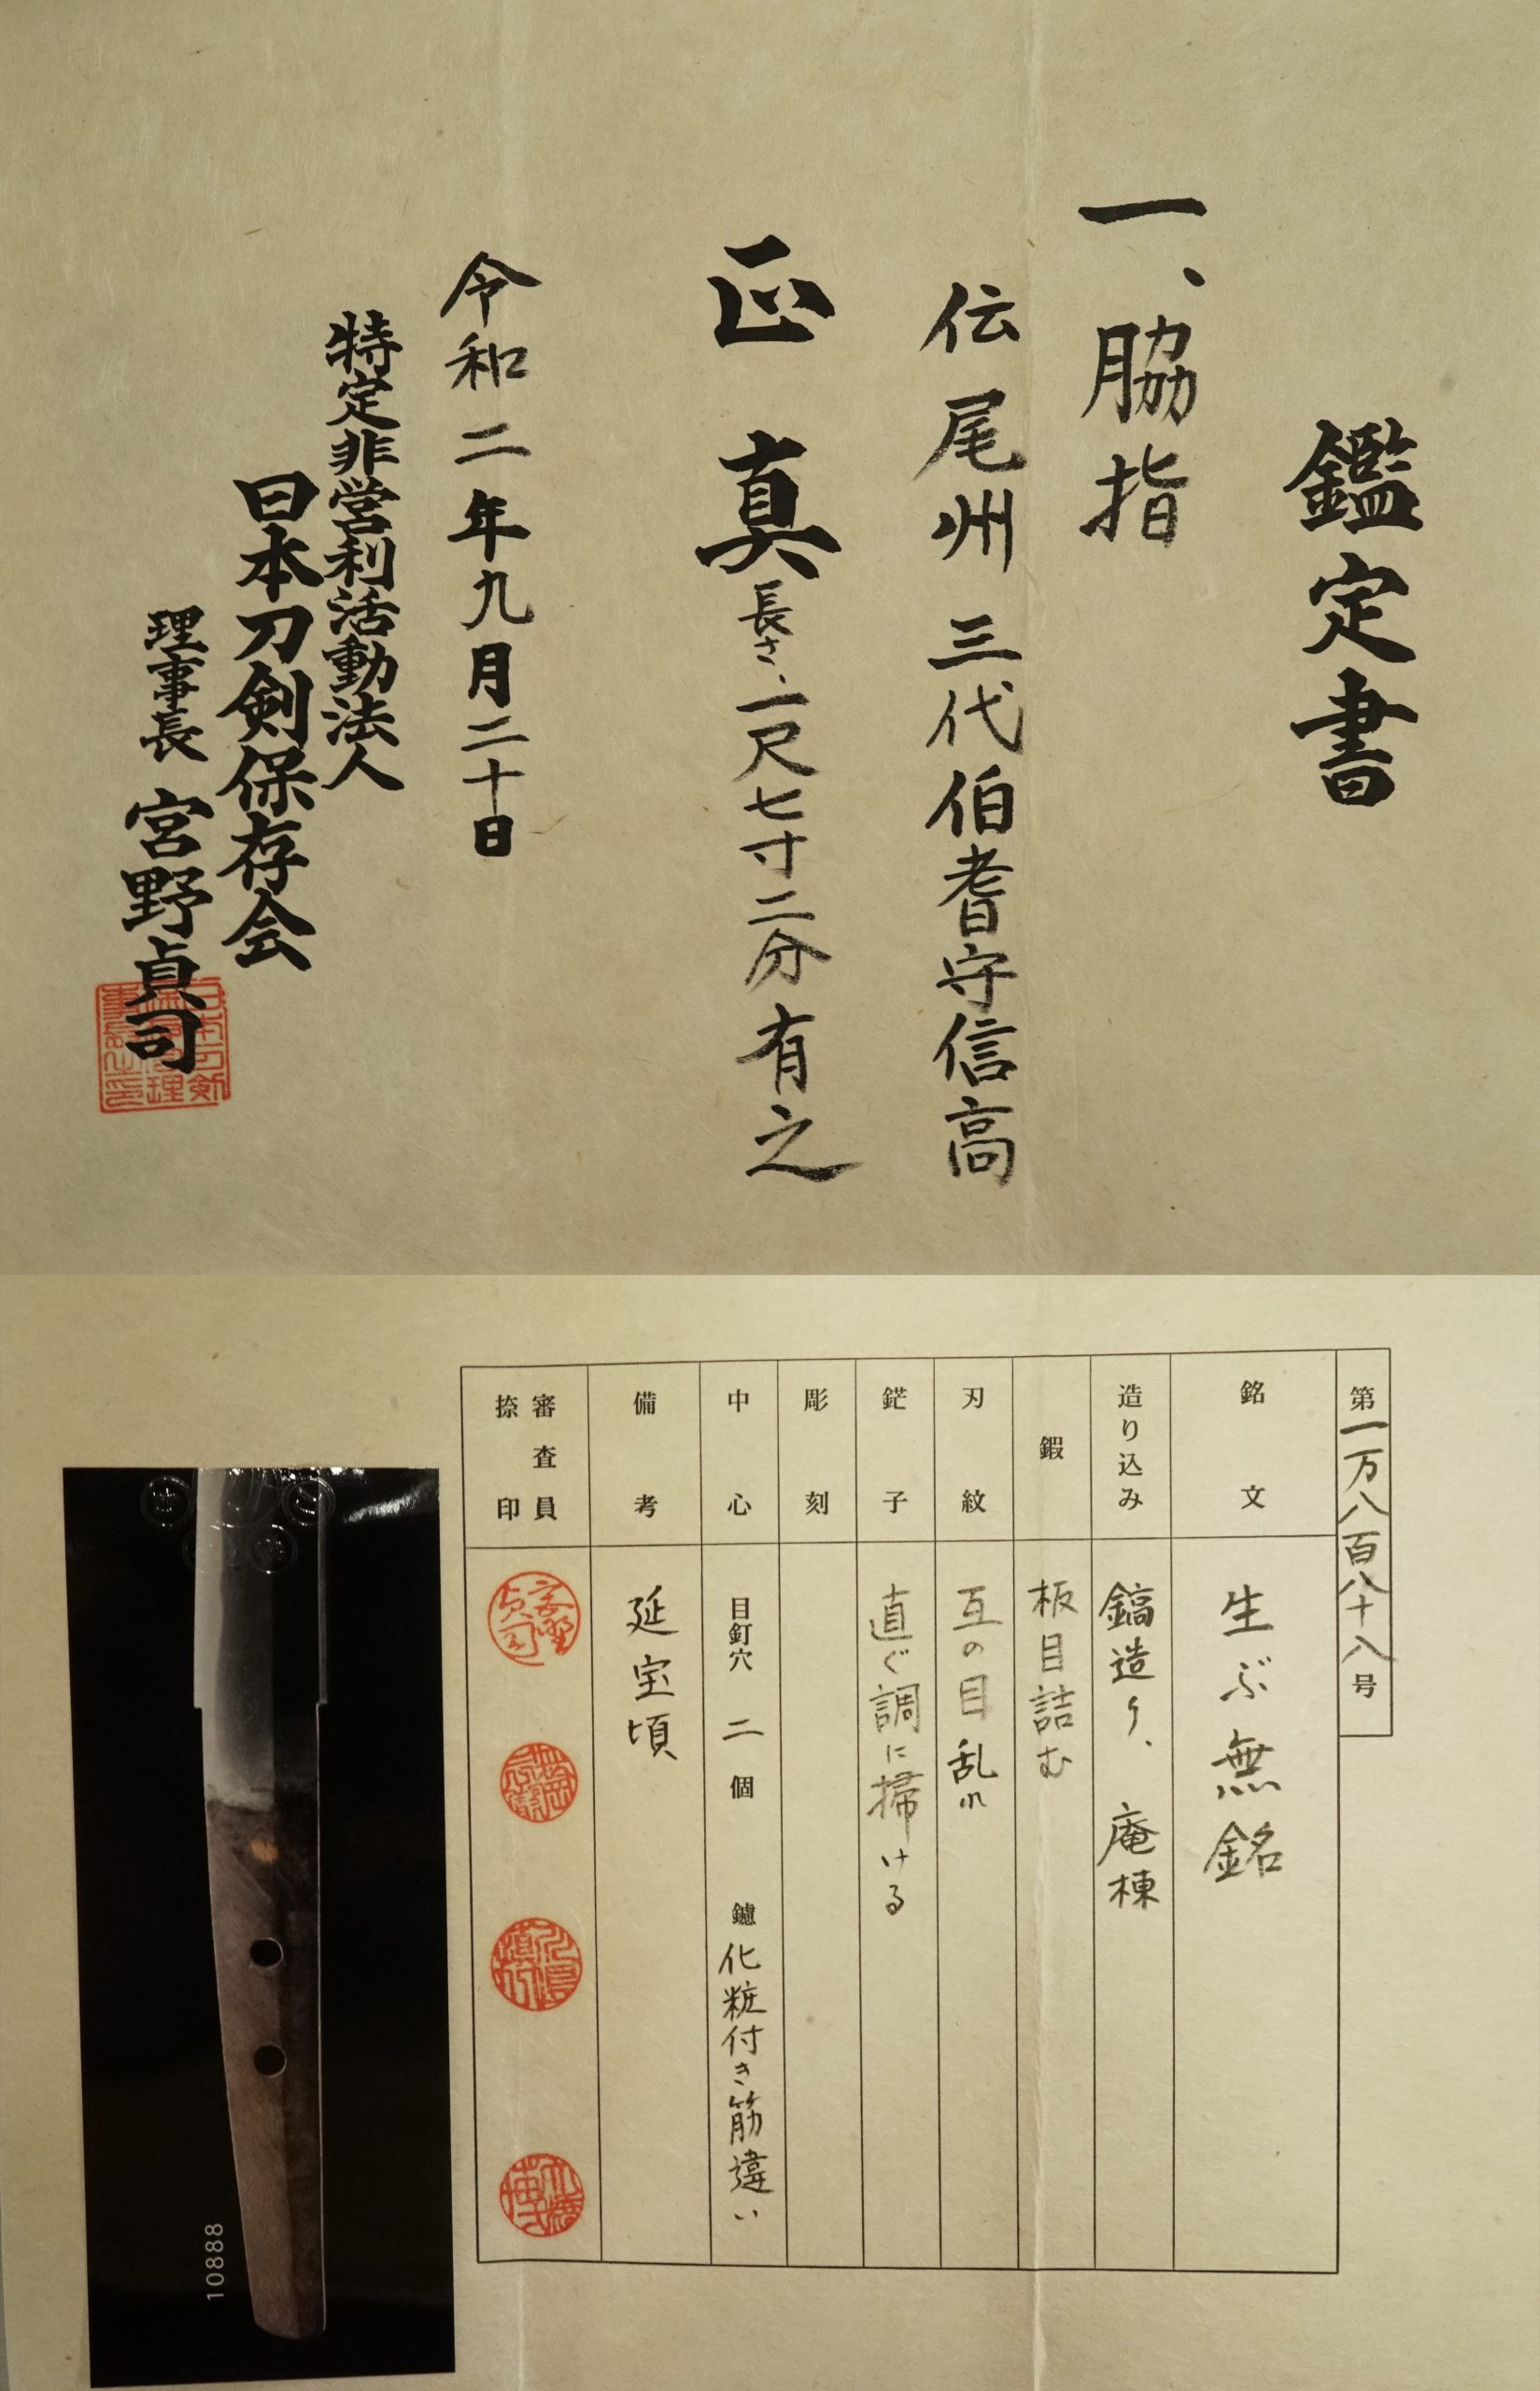 鑑定書
一、脇指
伝 尾州 三代伯耆守信高
正真 長さ、一尺七寸二分有之
令和二年九月二十日
特定非営利活動法人
日本刀剣保存会
理事長 宮野貞司
第一万八百八十八号
銘文 生ぶ無銘
造り込み 鎬造り、庵棟
鍜 板目詰む
刃紋 互の目乱れ
鋩子 直ぐ調に掃ける
彫刻
中心 目釘穴 二個 鑢 化粧付き筋違い
備考 延宝頃
審査員
捺印
10888